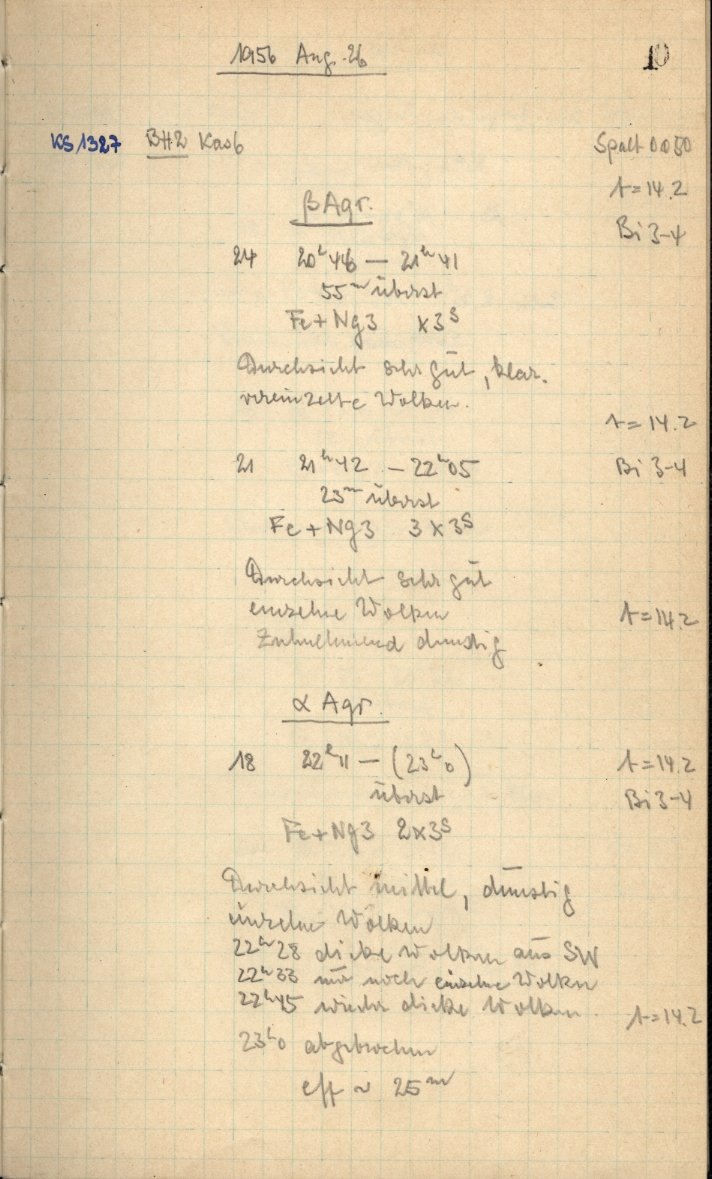 1956 Aug. 26
10
KS 1327 BH2 Kas 6
Spalt 0.050
t = 14.2
Bi 3-4
β Aqr.
24 20ʰ46 — 21ʰ41
55ᵐ überst
Fe + Ng3 x3ˢ
Durchsicht sehr gut, klar.
vereinzelte Wolken.
t = 14.2
21 21ʰ42 — 22ʰ05
Bi 3-4
23ᵐ überst
Fe + Ng3 3 x 3ˢ
Durchsicht sehr gut
einzelne Wolken
t = 14.2
Zunehmend dunstig
α Aqr.
18 22ʰ11 — (23ʰ0)
t = 14.2
überst
Bi 3-4
Fe + Ng3 2x3ˢ
Durchsicht mittel, dunstig
einzelne Wolken
22ʰ28 dicke Wolken aus SW
22ʰ33 nur noch einzelne Wolken
22ʰ45 wieder dicke Wolken
t = 14.2
23ʰ0 abgebrochen
eff ~ 25ᵐ